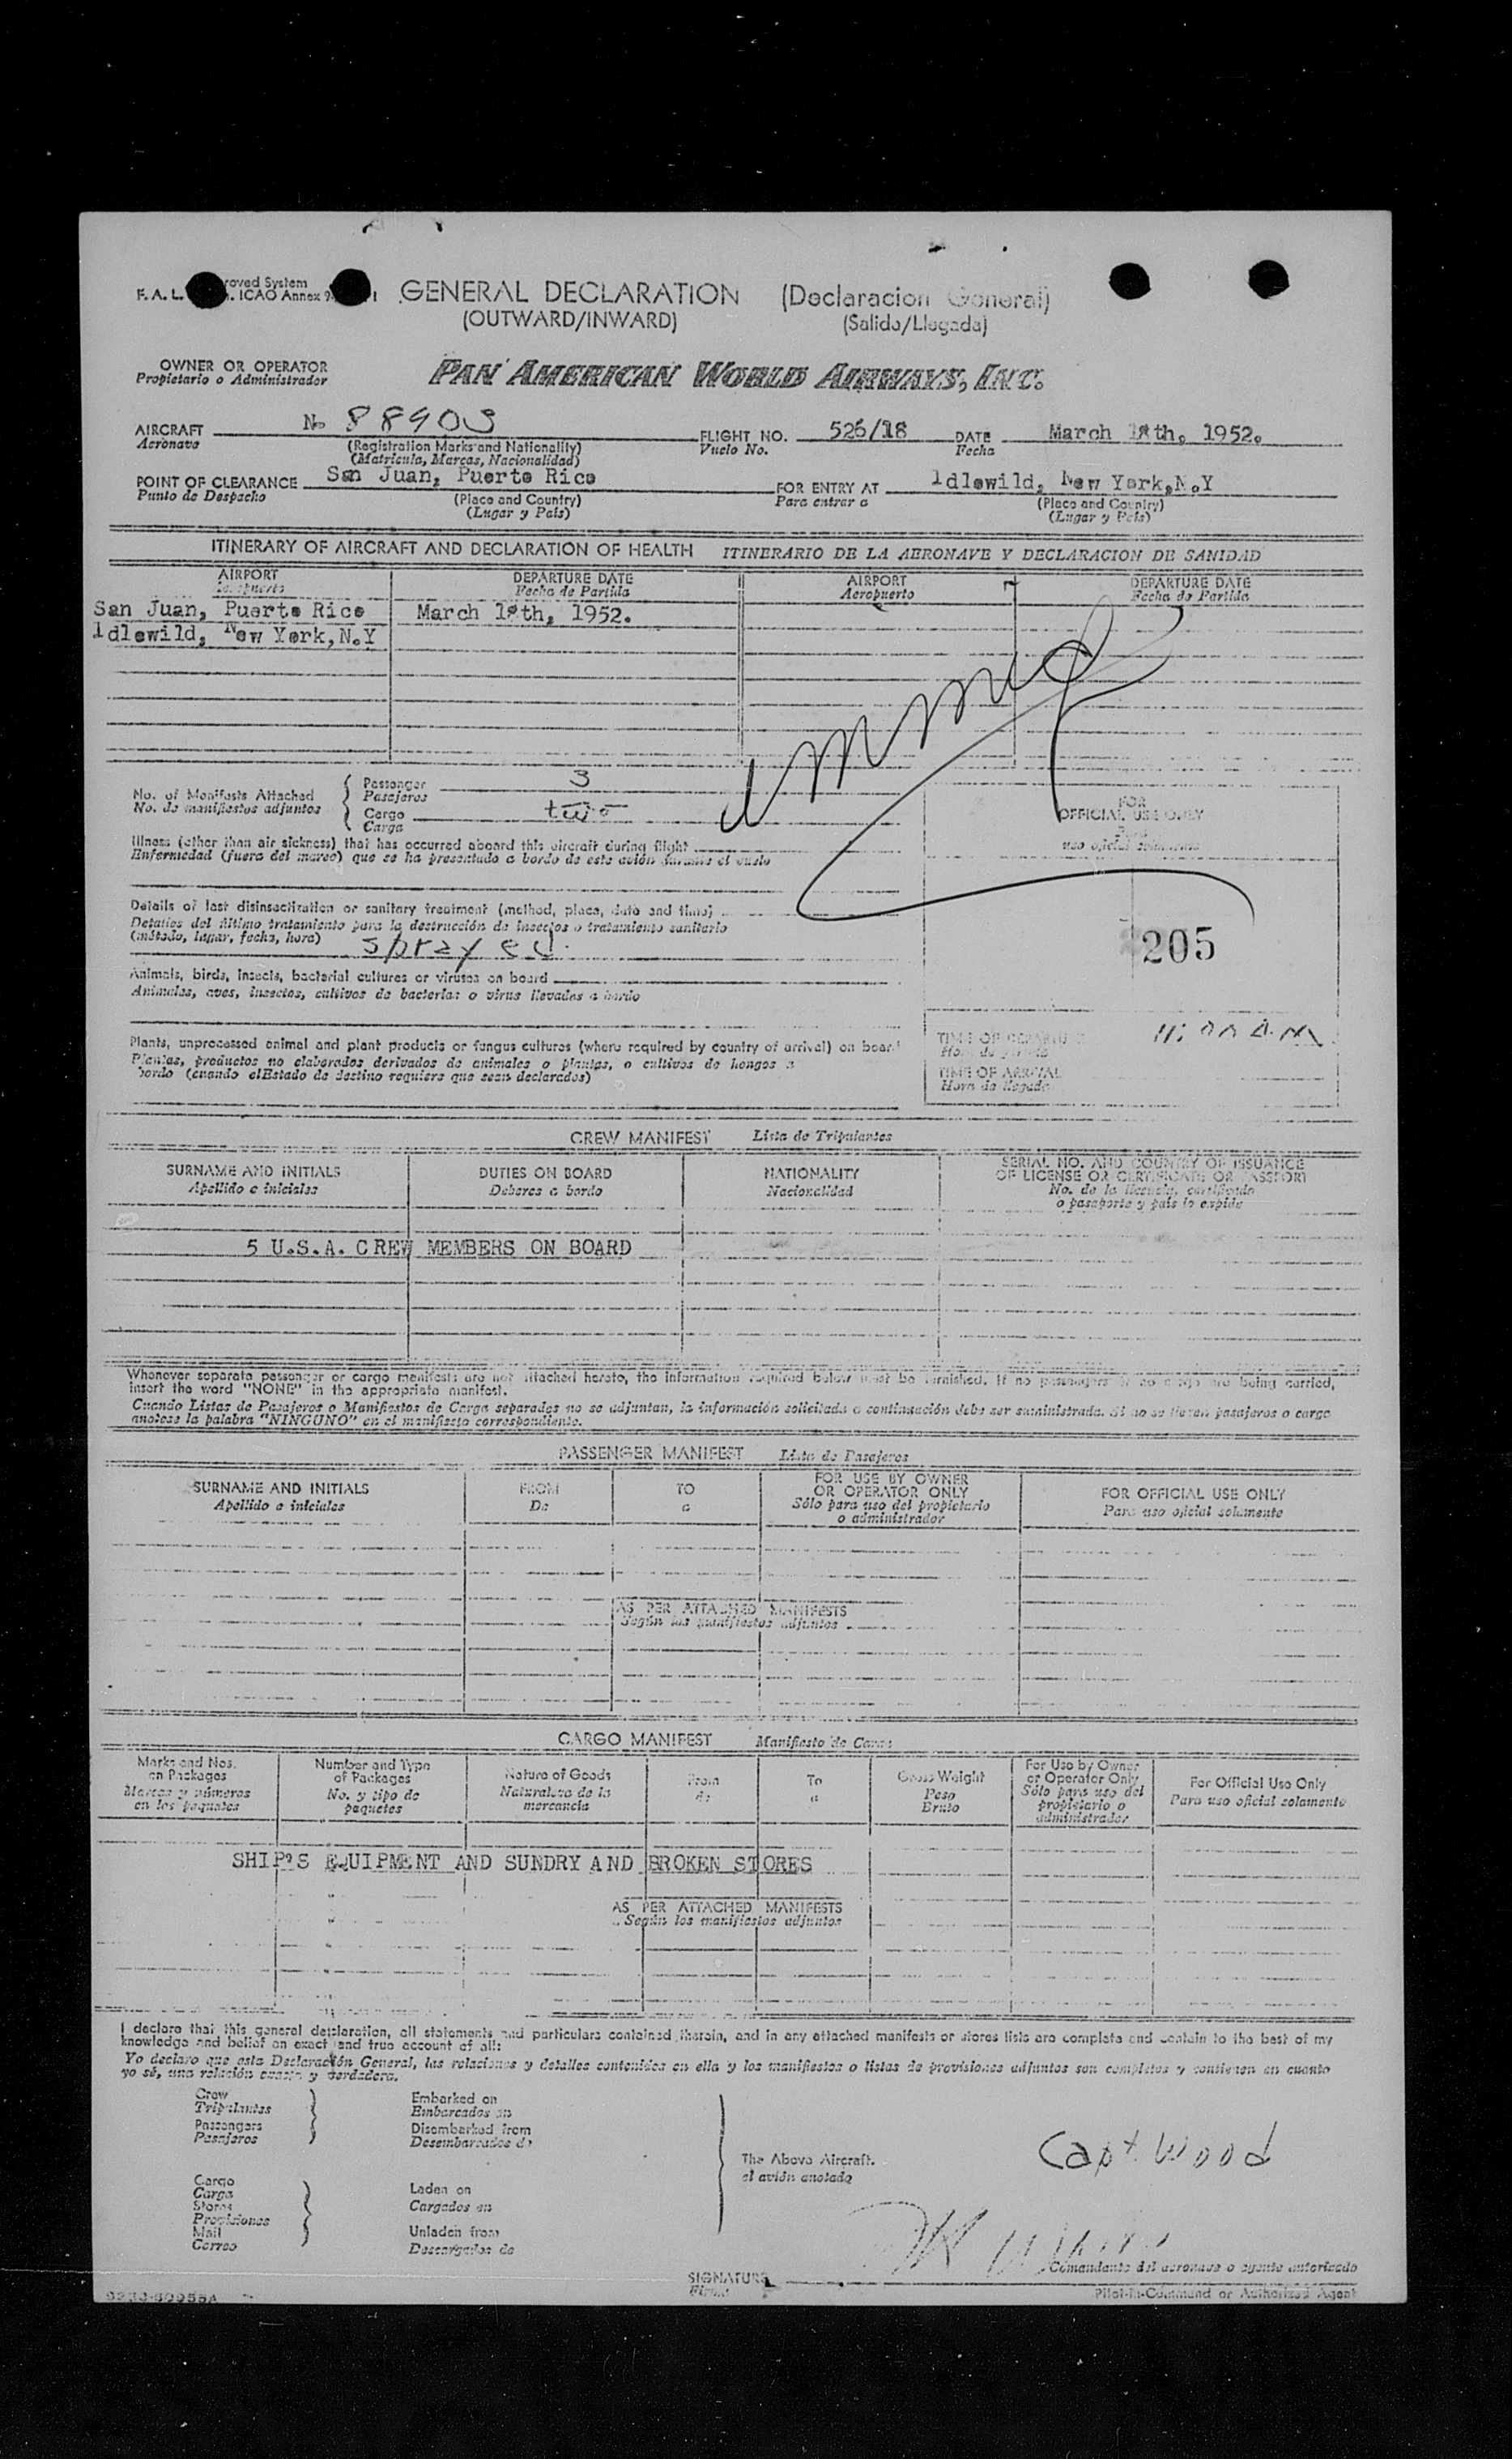 F. A. L. roved System
ICAO Annex 9
GENERAL DECLARATION (Declaracion General)
(OUTWARD/INWARD) (Salida/Llegada)
OWNER OR OPERATOR
Propietario o Administrador
PAN AMERICAN WORLD AIRWAYS, INC.
AIRCRAFT No 88903 FLIGHT NO. 526/18 DATE March 18th, 1952.
Aeronave (Registration Marks and Nationality) Vuelo No. Fecha
(Matricula, Marcas, Nacionalidad)
POINT OF CLEARANCE San Juan, Puerto Rico FOR ENTRY AT Idlewild, New York,N.Y
Punto de Despacho (Place and Country) Para entrar a (Place and Country)
(Lugar y País) (Lugar y País)
ITINERARY OF AIRCRAFT AND DECLARATION OF HEALTH ITINERARIO DE LA AERONAVE Y DECLARACION DE SANIDAD
AIRPORT DEPARTURE DATE AIRPORT DEPARTURE DATE
Aeropuerto Fecha de Partida Aeropuerto Fecha de Partida
San Juan, Puerto Rico March 18th, 1952.
Idlewild, New York,N.Y
No. of Manifests Attached
No. de manifiestos adjuntos
Passenger 3
Pasajeros
Cargo two
Carga
FOR
OFFICIAL USE ONLY
Para
uso oficial solamente
Illness (other than air sickness) that has occurred aboard this aircraft during flight
Enfermedad (fuera del mareo) que se ha presentado a bordo de este avión durante el vuelo
Details of last disinsectization or sanitary treatment (method, place, date and time)
Detalles del último tratamiento para la destrucción de insectos o tratamiento sanitario
(método, lugar, fecha, hora) sprayed.
205
Animals, birds, insects, bacterial cultures or viruses on board
Animales, aves, insectos, cultivos de bacterias o virus llevados a bordo
Plants, unprocessed animal and plant products or fungus cultures (where required by country of arrival) on board
Plantas, productos no elaborados derivados de animales o plantas, o cultivos de hongos a
bordo (cuando elEstado de destino requiera que sean declarados)
TIME OF DEPARTURE 11:00 A.M
TIME OF ARRIVAL
Hora de llegada
CREW MANIFEST Lista de Tripulantes
SURNAME AND INITIALS DUTIES ON BOARD NATIONALITY SERIAL NO. AND COUNTRY OF ISSUANCE
OF LICENSE OR CERTIFICATE OR PASSPORT
Apellido e iniciales Deberes a bordo Nacionalidad No. de la licencia, certificado
o pasaporte y país lo expide
5 U.S.A. CREW MEMBERS ON BOARD
Whenever separate passenger or cargo manifests are not attached hereto, the information required below must be furnished. If no passengers or no cargo are being carried,
insert the word "NONE" in the appropriate manifest.
Cuando Listas de Pasajeros o Manifiestos de Carga separados no se adjuntan, la información solicitada a continuación debe ser suministrada. Si no se llevan pasajeros o carga
anotese la palabra "NINGUNO" en el manifiesto correspondiente.
PASSENGER MANIFEST Lista de Pasajeros
SURNAME AND INITIALS FROM TO FOR USE BY OWNER
OR OPERATOR ONLY FOR OFFICIAL USE ONLY
Apellido e iniciales De a Sólo para uso del propietario
o administrador Para uso oficial solamente
AS PER ATTACHED MANIFESTS
Según los manifiestos adjuntos
CARGO MANIFEST Manifiesto de Carga
Marks and Nos.
on Packages
Marcas y números
en los paquetes
Number and Type
of Packages
No. y tipo de
paquetes
Nature of Goods
Naturaleza de la
mercancía
From
de
To
a
Gross Weight
Peso
Bruto
For Use by Owner
or Operator Only
Sólo para uso del
propietario o
administrador
For Official Use Only
Para uso oficial solamente
SHIP'S EQUIPMENT AND SUNDRY AND BROKEN STORES
AS PER ATTACHED MANIFESTS
Según los manifiestos adjuntos
I declare that this general declaration, all statements and particulars contained therein, and in any attached manifests or stores lists are complete and contain to the best of my
knowledge and belief an exact and true account of all:
Yo declaro que esta Declaración General, las relaciones y detalles contenidos en ella y los manifiestos o listas de provisiones adjuntos son completos y contienen en cuanto
yo sé, una relación exacta y verdadera.
Crew
Tripulantes
Passengers
Pasajeros
Embarked on
Embarcados en
Disembarked from
Desembarcados de
The Above Aircraft.
el avión anotado
Capt. Wood
Cargo
Carga
Stores
Provisiones
Mail
Correo
Laden on
Cargados en
Unladen from
Descargados de
Comandante del aeronave o agente autorizado
SIGNATURE
Firma
Pilot-in-Command or Authorized Agent